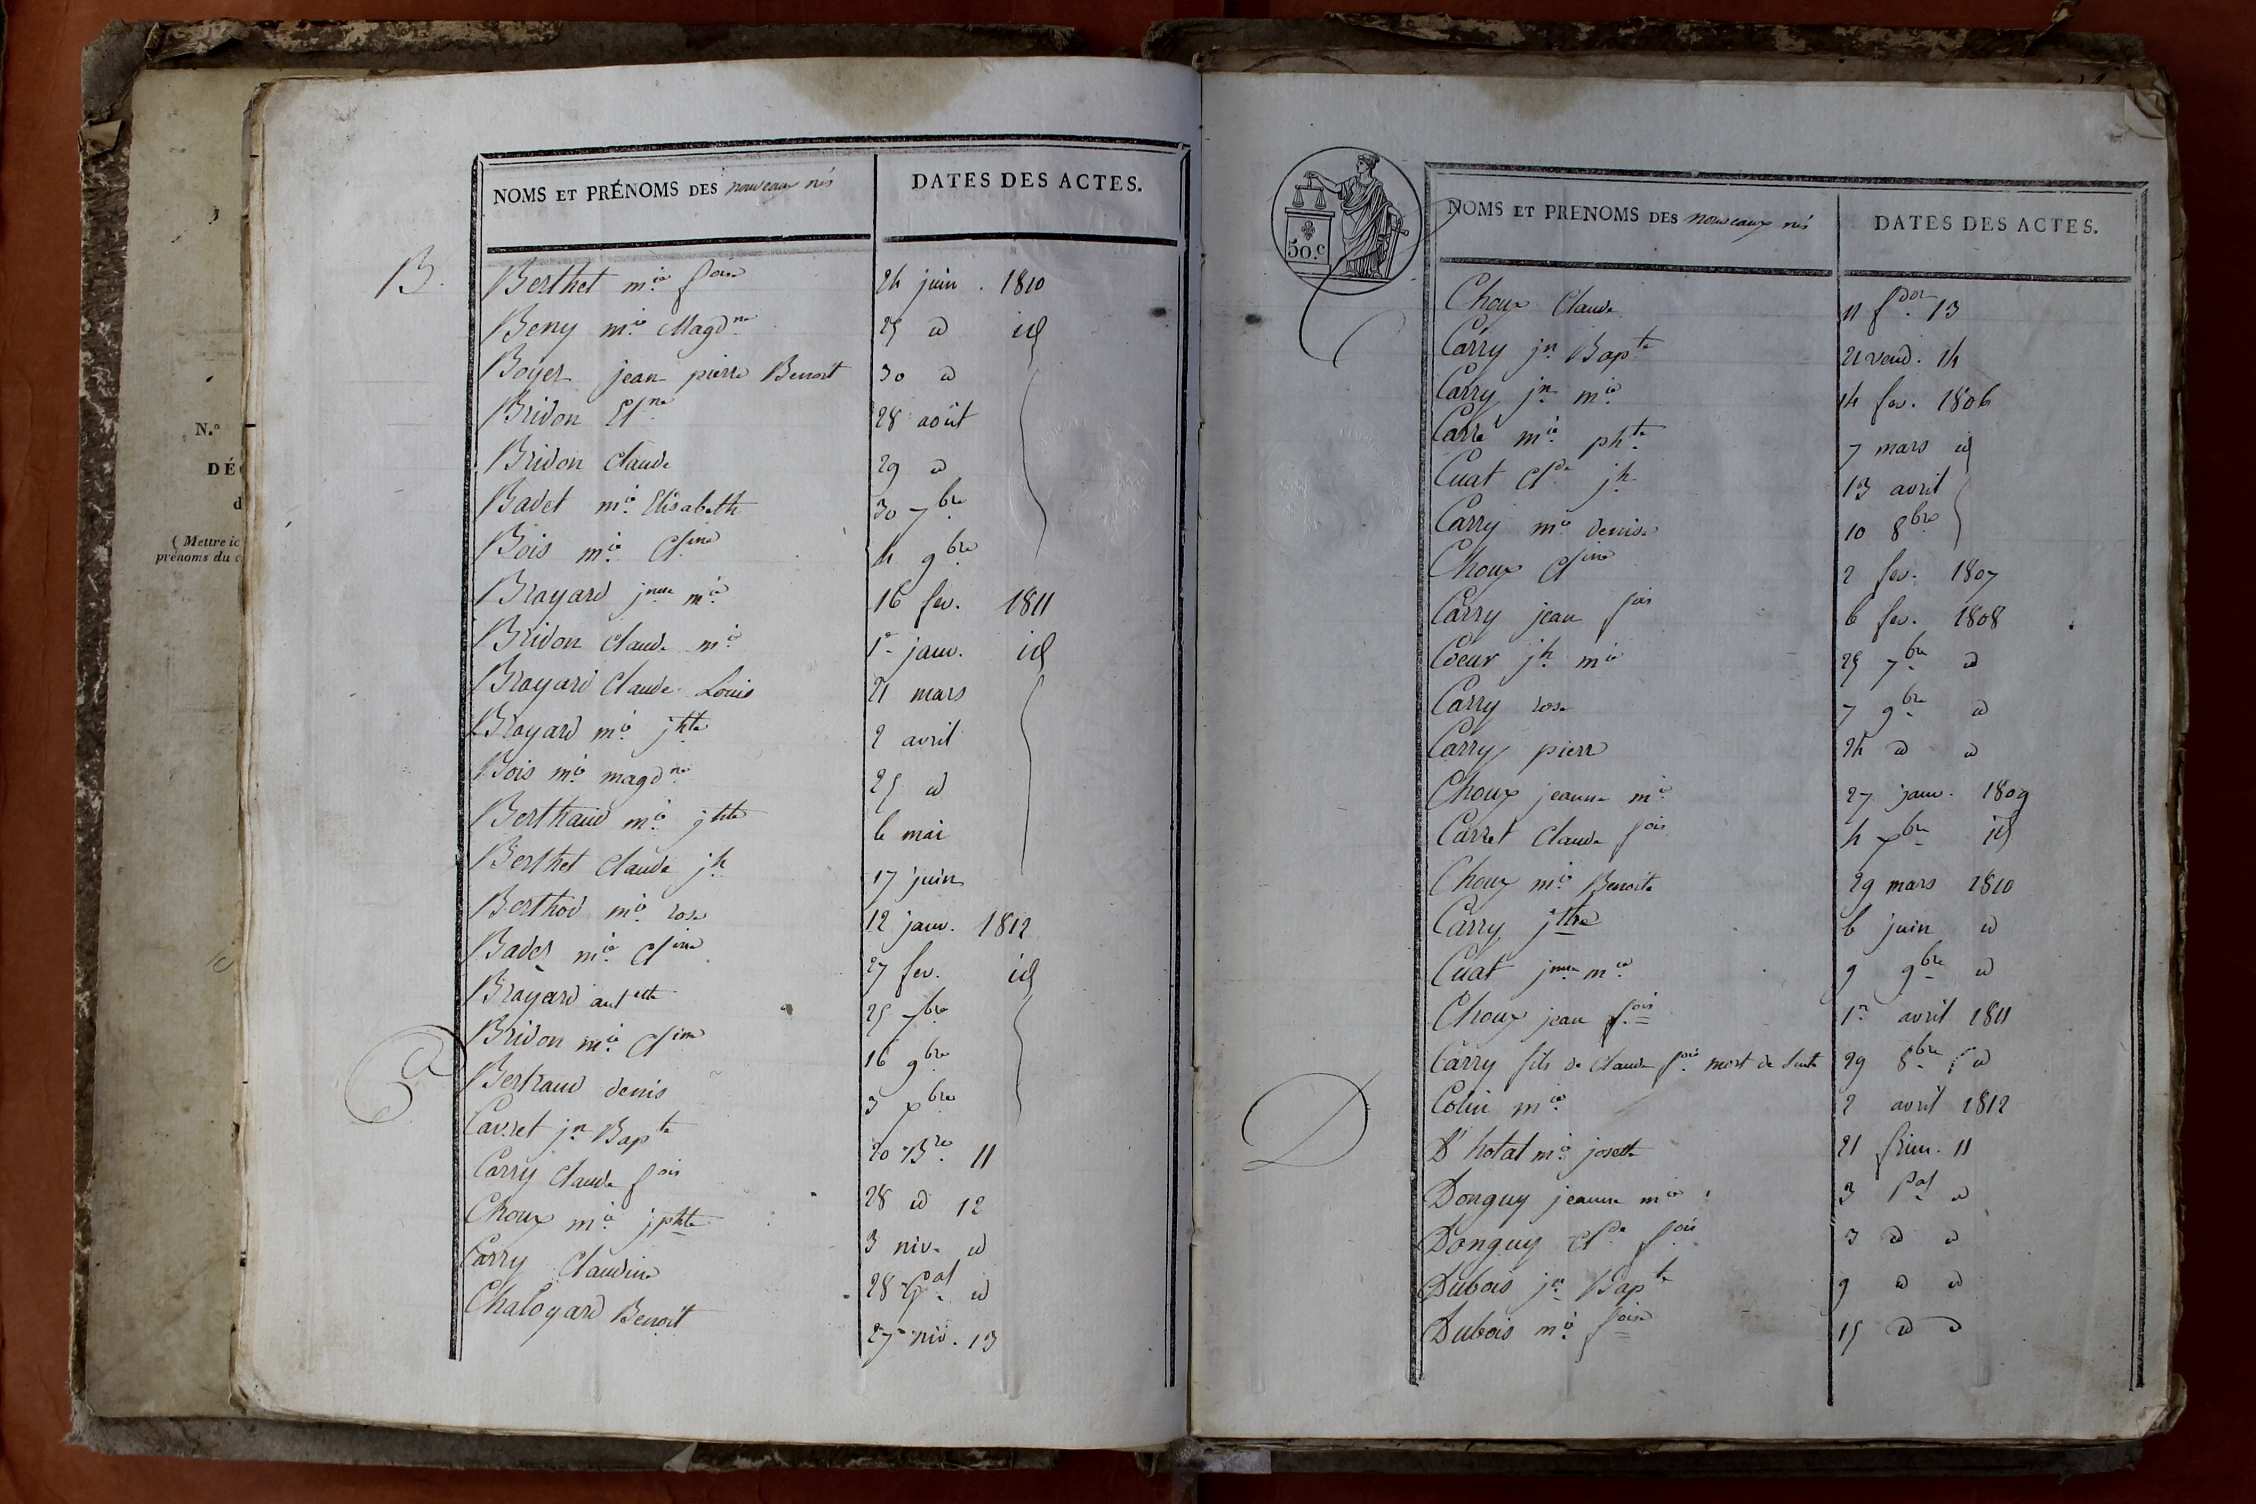 N.º
DÉC
d
( Mettre ic
prénoms du c
NOMS ET PRÉNOMS DES nouveaux nés DATES DES ACTES.
B.
Berthet mie foise 24 juin . 1810
Beny mie Magdne 25 id id
Boyer jean pierre Benoit 30 id
Bridon Etne 28 août
Bridon Claude 29 id
Badet mie Elisabeth 30 7bre
Bois mie Cline 4 9bre
Brayard jnne mie 16 fev. 1811
Bridon Claude mie 1er janv. id
Brayard Claude Louis 21 mars
Brayard mie jhte 2 avril
Bois mie magdne 25 id
Berthaud mie jhte 6 mai
Berthet Claude jh 17 juin
Berthod mie rose 12 janv. 1812
Bader mie Cline 27 fev. id
Brayard antette 25 7bre
Bridon mie Cline 16 9bre
Bertraud denis 3 xbre
C
Carret jn Bapte 20 Bre 11
Carry Claude fois 28 id 12
Choux mie jphte 3 niv. id
Carry Claudine 28 Gal id
Chaloyard Benoit 27 niv. 13
50.c
NOMS ET PRENOMS DES nouveaux nés DATES DES ACTES.
Choux Claude 11 fdor 13
Carry jn Bapte 21 vend. 14
Carry jn mie 14 fev. 1806
Carré mie phte 7 mars id
Cuat Clde jh 13 avril
Carry mie denise 10 8bre
Choux Cline 2 fev. 1807
Carry jean fois 6 fev. 1808
Coeur jh mie 25 7bre id
Carry rose 7 9bre id
Carry pierre 24 id id
Choux jeanne mie 27 janv. 1809
Carret Claude fois 4 xbre id
Choux mie Benoite 29 mars 1810
Carry jthe 6 juin id
Cuat jnne mie 9 9bre id
Choux jean fois 1er avril 1811
Carry fils de Claude fois mort de suite 29 8bre id
Colin mie 2 avril 1812
D
D'hotal mie josette 21 frim. 11
Donguy jeanne mie 3 Pal id
Donguy Clde fois 3 id id
Dubois jn Bapte 9 id id
Dubois mie foise 15 id id